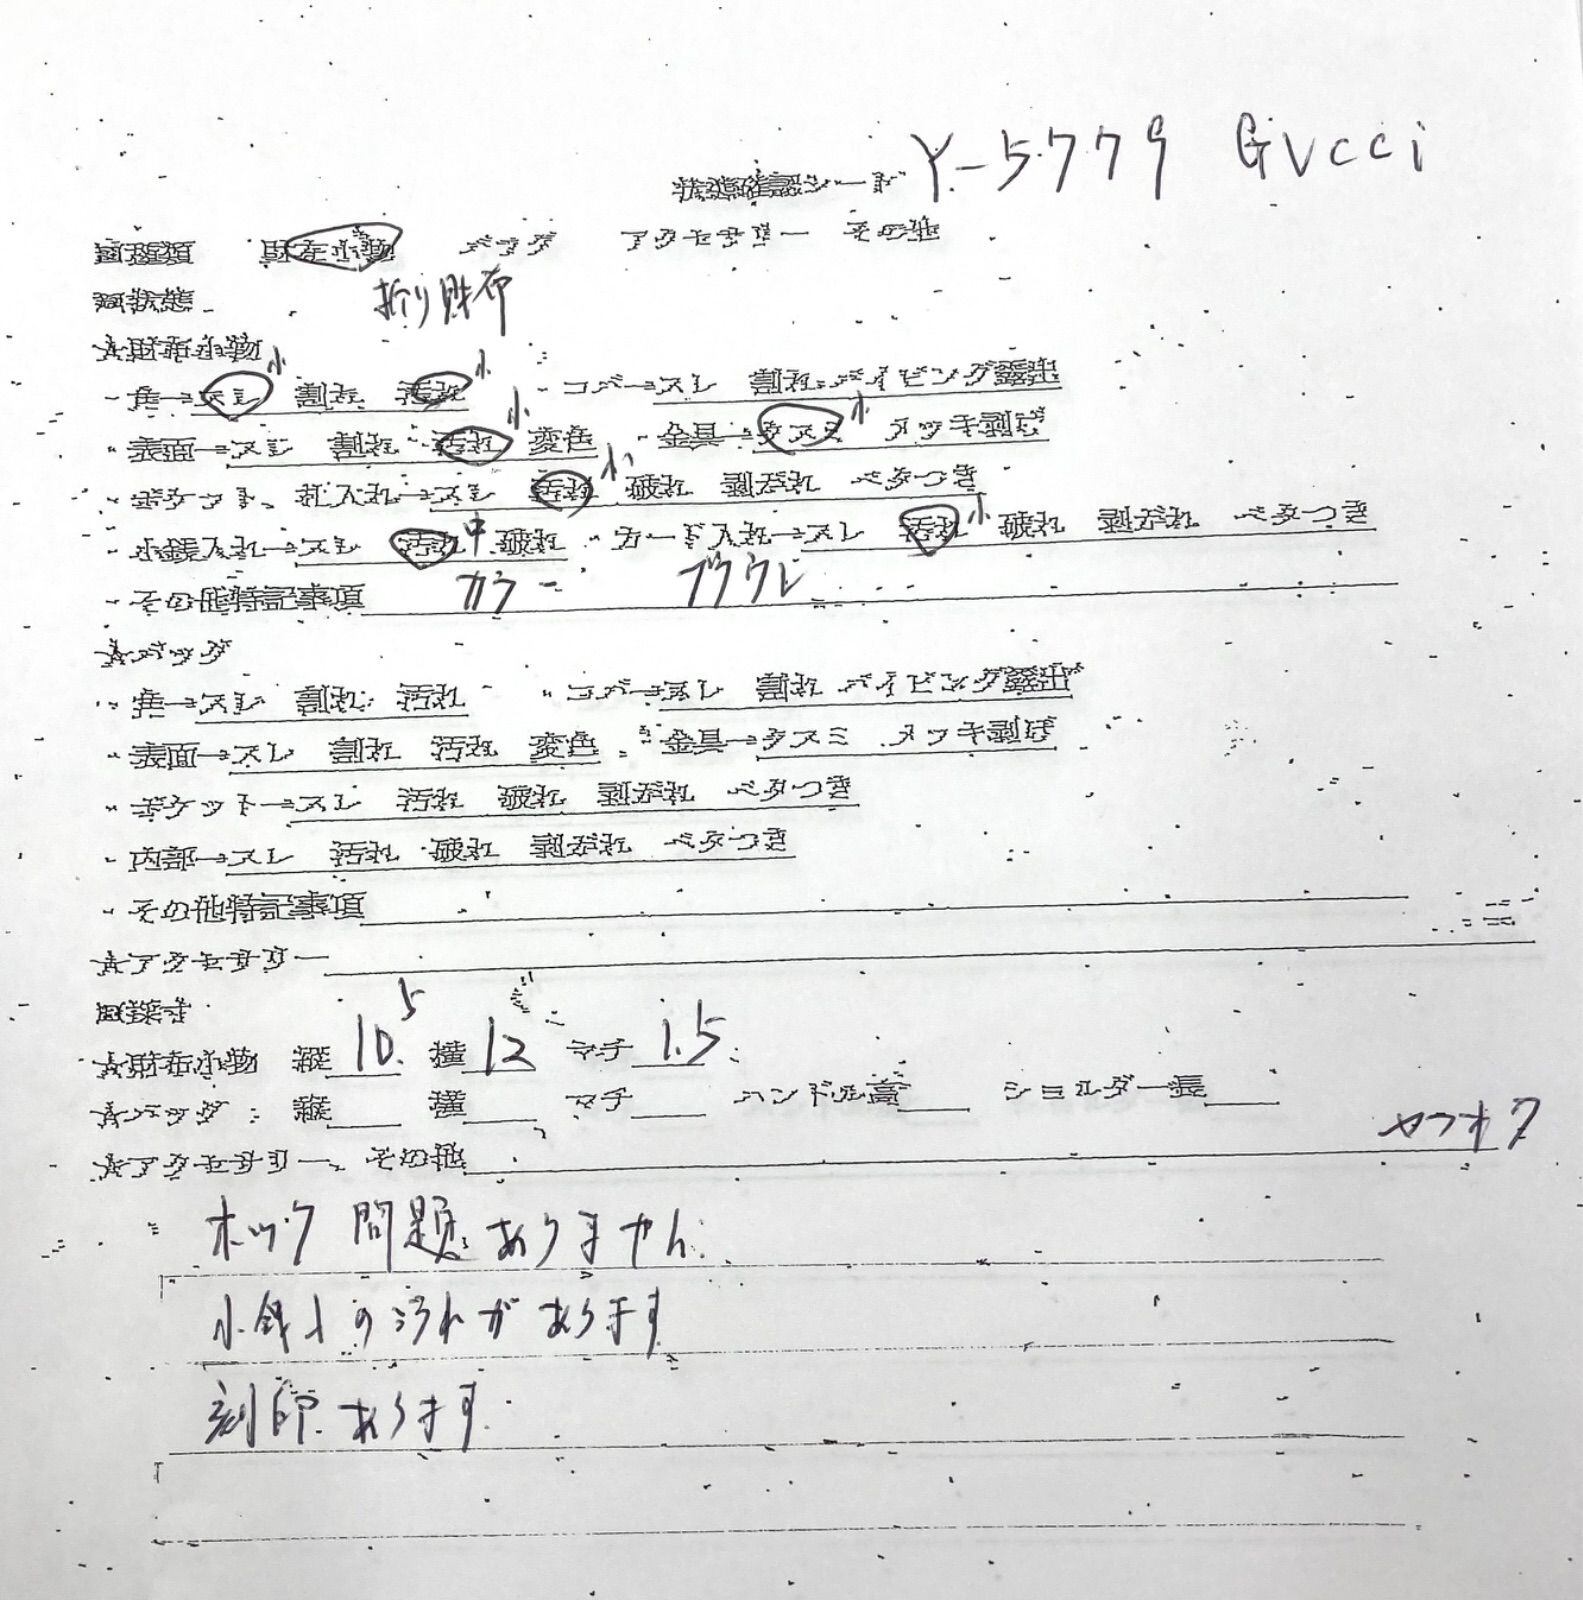 状態確認シート Y-5779 GUCCI
□種類 財布小物 バッグ アクセサリー その他
□状態 折り財布
☆財布小物
・角→スレ小 割れ 汚れ小 ・コバ→スレ 割れ パイピング露出
・表面→スレ 割れ 汚れ小 変色 ・金具→クスミ小 メッキ剥げ
・ポケット、札入れ→スレ 汚れ小 破れ 剥がれ ベタつき
・小銭入れ→スレ 汚れ中 破れ ・カード入れ→スレ 汚れ小 破れ 剥がれ ベタつき
・その他特記事項 カラー ブラウン
☆バッグ
・角→スレ 割れ 汚れ ・コバ→スレ 割れ パイピング露出
・表面→スレ 割れ 汚れ 変色 ・金具→クスミ メッキ剥げ
・ポケット→スレ 汚れ 破れ 剥がれ ベタつき
・内部→スレ 汚れ 破れ 剥がれ ベタつき
・その他特記事項
☆アクセサリー
□採寸
☆財布小物 縦 10.5 横 12 マチ 1.5
☆バッグ 縦 横 マチ ハンドル高 ショルダー長
ヤフオク
☆アクセサリー、その他
ホック 問題ありません
小銭入の汚れがあります
刻印あります